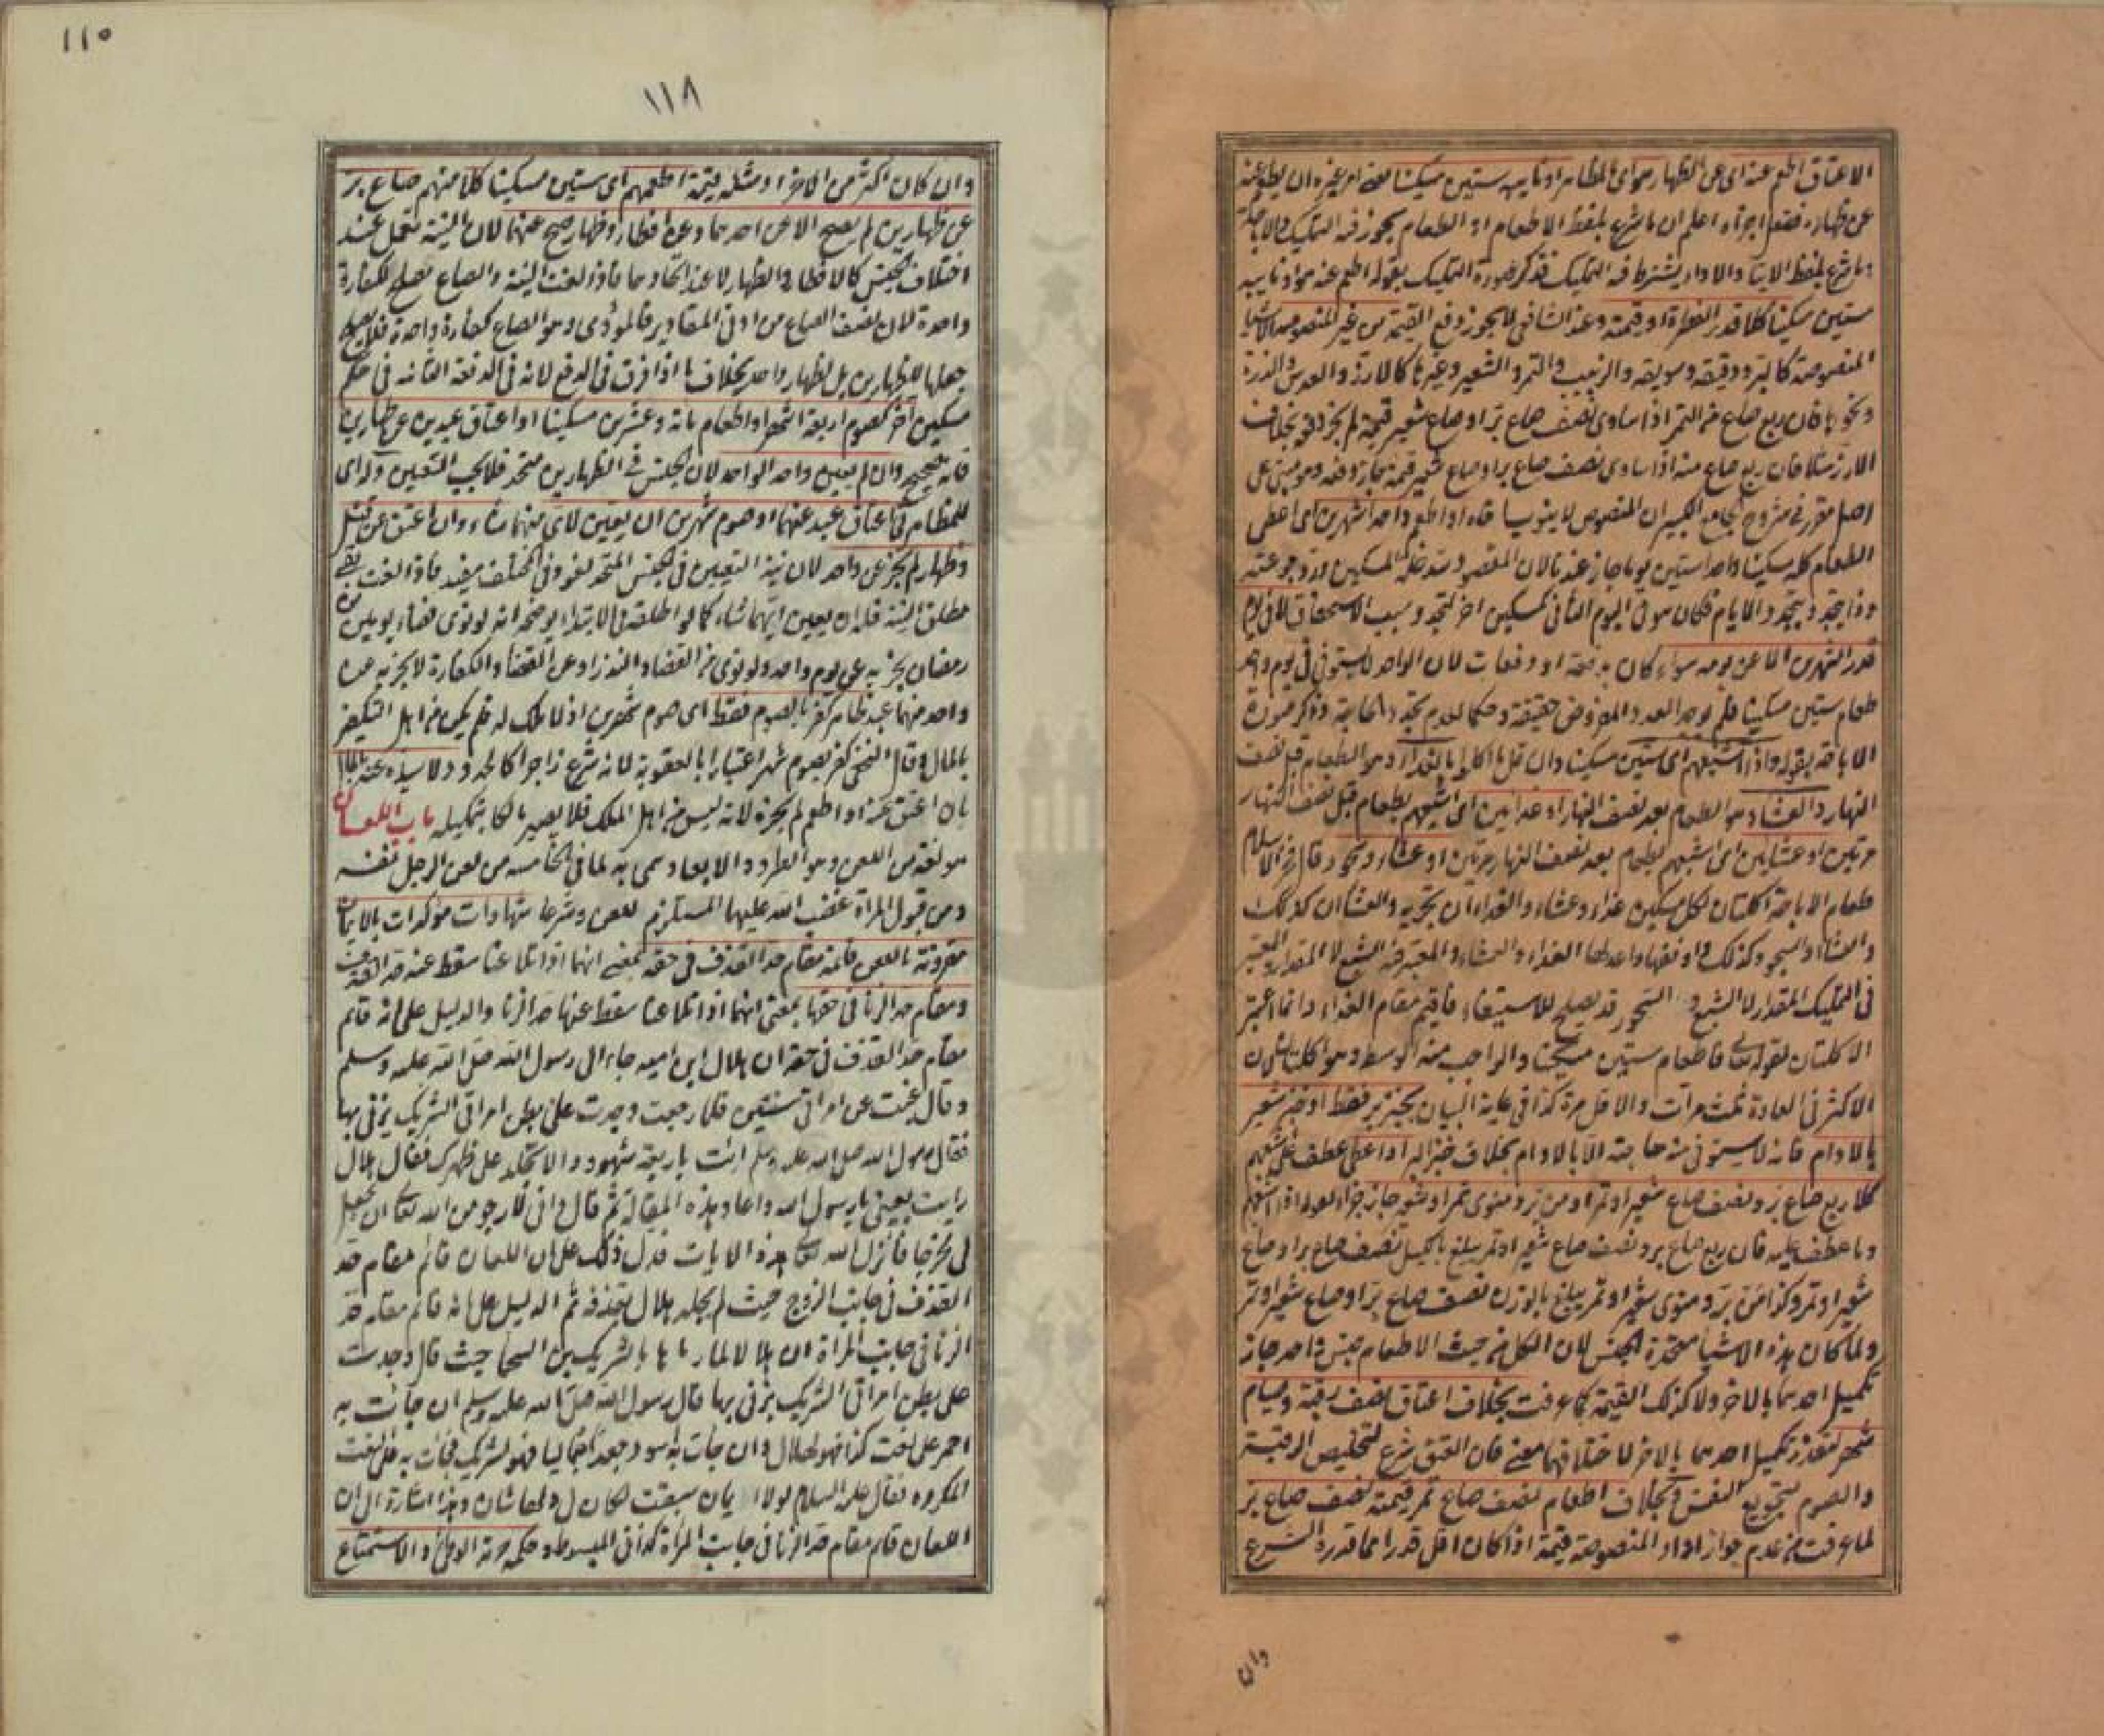 الاعتاق اطعم عنه اى عن الظهار هو اى المظاهر او نايبه ستين مسكينا يعنى امر غيره ان يطعم عنه
عن ظهاره ففعل اجزأه اعلم ان ما شرع بلفظ الاطعام او الطعام يجوز فيه التمليك والاباحة
وما شرع بلفظ الايتا والادا يشترط فيه التمليك فذكر صورة التمليك بقوله اطعم عنه هو او نايبه
ستين مسكينا كلا قدر الفطرة او قيمته وعند الشافعى لا يجوز دفع القيمة من غير المنصوصه الاشيا
المنصوصة كالبر ودقيقه وسويقه والزبيب والتمر والشعير وغيرها كالارز والعدس والذرة
ونحوها فان ربع صاع من التمر اذا ساوى نصف صاع بر او صاع شعير قيمة لم يجز دفعه بخلاف
الارز مثلا فان ربع صاع منه اذا ساوى نصف صاع بر او صاع شعير قيمة جاز دفعه وهو مبنى على
اصل مقرر فى شروح الجامع الكبير ان المنصوص لا ينوب او اطعم واحدا شهرين اى اعطى
الطعام كله مسكينا واحدا ستين يوما جاز عندنا لان المقصود سد خلة المسكين ورد جوعته
وذا يتجدد بتجدد الايام فكان هو فى اليوم الثانى كمسكين اخر لتجدد سبب الاستحقاق لا فى يوم
قدر الشهرين الا عن يومه سواء كان بدفعة او دفعات لان الواحد لا يستوفى فى يوم واحد
طعام ستين مسكينا فلم يوجد العدد المفروض حقيقة وحكما لعدم تجدد الحاجة وذكر صورة
الاباحة بقوله واذا اشبعهم اى ستين مسكينا وان قل ما اكلوا بالغداء وهو الطعام قبل نصف
النهار والعشاء وهو الطعام بعد نصف النهار او غدائين اى اشبعهم بطعام قبل نصف النهار
مرتين او عشايين اى اشبعهم بطعام بعد نصف النهار مرتين او عشاء وسحور وقال فخر الاسلام
طعام الاباحة اكلتان لكل مسكين غداء وعشاء والغداءان يجزيه والعشاءان كذلك
والعشاء والسحور كذلك واوفقها واعدلها الغداء والعشاء والمعتبر فيه الشبع لا المقدار والمعتبر
فى التمليك المقدار لا الشبع و السحور قد يصلح للاستيفاء فاقيم مقام الغداء وانما اعتبر
الاكلتان لقوله تعالى فاطعام ستين مسكينا والواجب منه الاوسط وهو اكلتان لان
الاكثر فى العادة ثلث مرات والاقل مرة كذا فى غاية البيان بخبز بر فقط او خبز شعير
بالادام فانه لا يستوفى منه حاجته الا بالادام بخلاف خبز البر او اعطى عطف على اشبعهم
كلا ربع صاع بر ونصف صاع شعير او تمر او من بر ومنوى تمر او شعير جاز جزاء لقوله اذا اشبعهم
وما عطف عليه فان ربع صاع بر ونصف صاع شعير او تمر يبلغ بالكيل نصف صاع بر او صاع
شعير او تمر وكذا من بر ومنوى شعير او تمر يبلغ بالوزن نصف صاع بر او صاع شعير او تمر
ولما كان هذه الاشيا متحدة الجنس لان الكل من حيث الاطعام جنس واحد جاز
تكميل احدهما بالاخر ولا كذلك القيمة كما عرفت بخلاف اعتاق نصف رقبة وصيام
شهر تعذر تكميل احدهما بالاخر لاختلافهما معنى فان العتق شرع لتخليص الرقبة
والصوم لتجويع النفس وبخلاف اطعام نصف صاع تمر قيمته نصف صاع بر
لما عرفت من عدم جواز اداء المنصوصة قيمة اذا كان اقل قدرا مما قدره الشرع
وان
١١٥
١١٨
وان كان اكثر من الاخر او مثله قيمة اطعمهم اى ستين مسكينا كلا منهم صاع بر
عن ظهارين لم يصح الا عن احدهما وعن افطار وظهار صح عنهما لان النية تعمل عند
اختلاف الجنس كالافطار والظهار لا عند اتحادهما فاذا لغت النية والصاع يصلح لكفارة
واحدة لان نصف الصاع من ادنى المقادير فالمؤدى وهو الصاع كفارة واحدة فلا يصح
جعلها للظهارين بل لظهار واحد بخلاف ما اذا فرق فى الدفع لانه فى الدفعة الثانية فى حكم
مسكين آخر كصوم اربعة اشهر او اطعام مائة وعشرين مسكينا او اعتاق عبدين عن ظهارين
فانه صحيح وان لم يعين واحدا لواحد لان الجنس فى الظهارين متحد فلا يجب التعيين وله اى
للمظاهر فى اعتاق عبد عنهما او صوم شهرين ان يعين لاى منهما شاء وان اعتق عن قتل
وظهار لم يجز عن واحد لان نية التعيين فى الجنس المتحد لغو وفى المختلف مفيد فاذا لغت بقى
مطلق النية فله ان يعين ايهما شاء كما لو اطلقه فى الابتداء يوضحه انه لو نوى قضاء يومين من
رمضان يجزيه عن يوم واحد ولو نوى من القضاء والنذر او عن القضا والكفارة لا يجزيه عن
واحد منهما عبد ظاهر كفر بالصوم فقط اى صوم شهرين اذ لا ملك له فلم يكن من اهل التكفير
بالمال وقال النخعى كفر بصوم شهر اعتبارا بالعقوبة لانه شرع زاجرا كالحدود لا سيده عنه بالمال
بان اعتق عنه او اطعم لم يجزه لانه ليس من اهل الملك فلا يصير مالكا بتمليكه باب اللعان
هو لغة من اللعن وهو الطرد والابعاد سمى به لما فى الخامسة من لعن الرجل نفسه
ومن قبول المرأة غضب الله عليها المستلزم للعن وشرعا شهادات مؤكدات بالايمان
مقرونة باللعن قائمة مقام حد القذف فى حقه بمعنى انهما اذا تلاعنا سقط عنه حد القذف
ومقام حد الزنا فى حقها بمعنى انهما اذا تلاعنا سقط عنها حد الزنا والدليل على انه قائم
مقام حد القذف فى حقه ان هلال ابن اميه جاء الى رسول الله صلى الله عليه وسلم
وقال غبت عن امراتى سنتين فلما رجعت وجدت على بطن امراتى الشريك يزنى بها
فقال رسول الله صلى الله عليه وسلم ائت باربعة شهود والا تجلد على ظهرك فقال هلال
رايت بعينى يا رسول الله واعاد هذه المقالة ثم قال وانى لارجو من الله تعالى ان يجعل
لى مخرجا فانزل الله تعالى هذه الايات فدل ذلك على ان اللعان قائم مقام حد
القذف فى جانب الزوج حيث لم يجلد هلال بقذفه ثم الدليل على انه قائم مقام حد
الزنا فى جانب المرأة ان هلالا لما رماها بالشريك بن السحما حيث قال وجدت
على بطن امراتى الشريك يزنى بها قال رسول الله صلى الله عليه وسلم ان جائت به
احمر على نعت كذا فهو لهلال وان جات به اسود جعدا جماليا فهو لشريك فجأت به على النعت
المكروه فقال عليه السلام لولا ايمان سبقت لكان لى ولها شان وهذا اشارة الى ان
اللعان قائم مقام حد الزنا فى جانب المرأة كذا فى المبسوط وحكمه حرمة الوطئ والاستمتاع